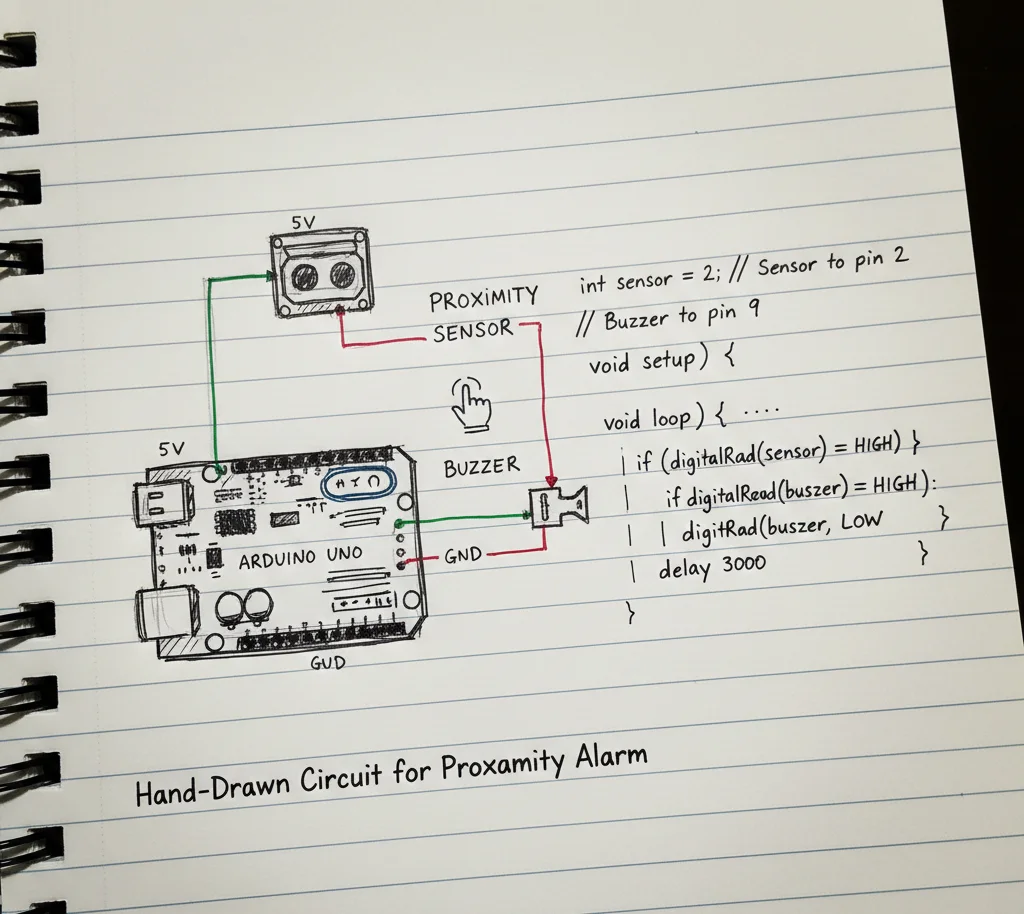 5V
PROXIMITY
SENSOR
5V
BUZZER
ARDUINO UNO
GND
GUD
int sensor = 2; // Sensor to pin 2
// Buzzer to pin 9
void setup) {
void loop) { ....
| if (digitalRad(sensor) = HIGH) }
| if digitalRead(buszer) = HIGH):
| | digitRad(buszer, LOW }
| delay 3000 }
}
Hand-Drawn Circuit for Proxamity Alarm